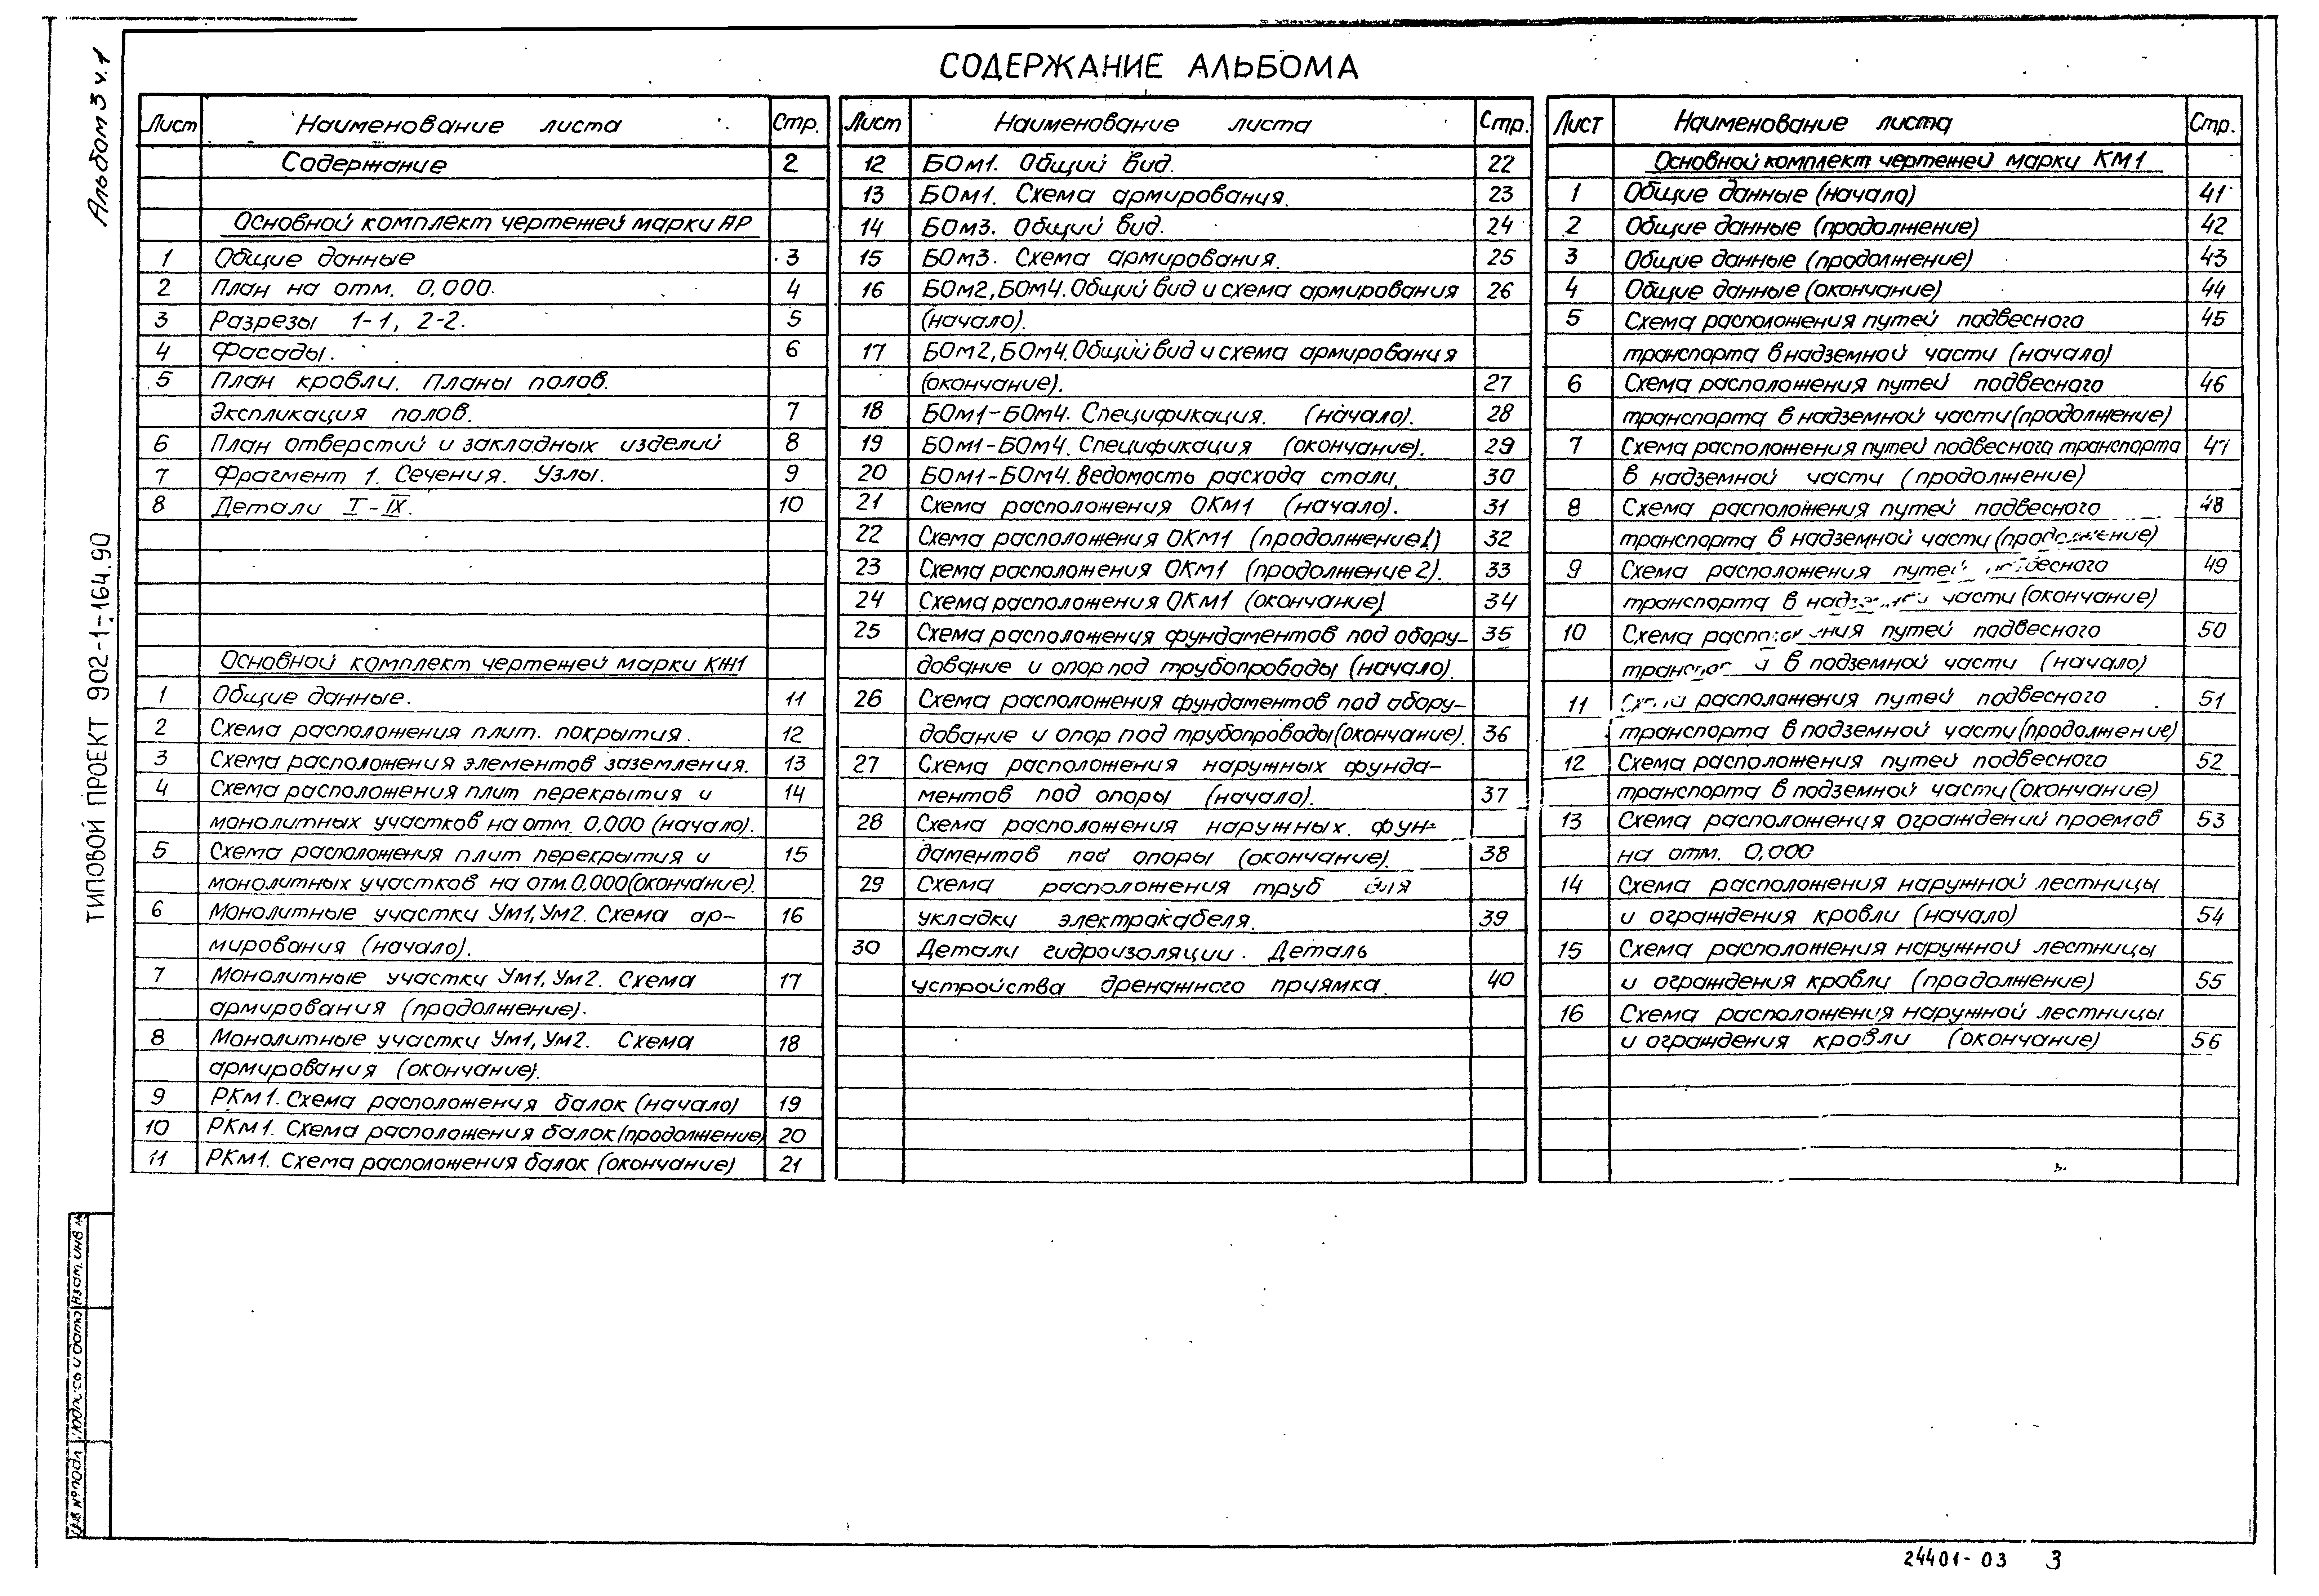 СОДЕРЖАНИЕ АЛЬБОМА
Альбом 3 ч.1
ТИПОВОЙ ПРОЕКТ 902-1-164.90
Лист Наименование листа Стр.
Содержание 2
Основной комплект чертежей марки АР
1 Общие данные 3
2 План на отм. 0,000. 4
3 Разрезы 1-1, 2-2. 5
4 Фасады. 6
5 План кровли. Планы полов.
Экспликация полов. 7
6 План отверстий и закладных изделий 8
7 Фрагмент 1. Сечения. Узлы. 9
8 Детали I-IX. 10
Основной комплект чертежей марки КЖ1
1 Общие данные. 11
2 Схема расположения плит. покрытия. 12
3 Схема расположения элементов заземления. 13
4 Схема расположения плит перекрытия и 14
монолитных участков на отм. 0,000 (начало).
5 Схема расположения плит перекрытия и 15
монолитных участков на отм. 0.000 (окончание).
6 Монолитные участки Ум1, Ум2. Схема ар- 16
мирования (начало).
7 Монолитные участки Ум1, Ум2. Схема 17
армирования (продолжение).
8 Монолитные участки Ум1, Ум2. Схема 18
армирования (окончание).
9 РКм1. Схема расположения балок (начало) 19
10 РКм1. Схема расположения балок (продолжение) 20
11 РКм1. Схема расположения балок (окончание) 21
Лист Наименование листа Стр.
12 БОм1. Общий вид. 22
13 БОм1. Схема армирования. 23
14 БОм3. Общий вид. 24
15 БОм3. Схема армирования. 25
16 БОм2, БОм4. Общий вид и схема армирования 26
(начало).
17 БОм2, БОм4. Общий вид и схема армирования
(окончание). 27
18 БОм1-БОм4. Спецификация. (начало). 28
19 БОм1-БОм4. Спецификация (окончание). 29
20 БОм1-БОм4. Ведомость расхода стали. 30
21 Схема расположения ОКм1 (начало). 31
22 Схема расположения ОКм1 (продолжение 1) 32
23 Схема расположения ОКм1 (продолжение 2). 33
24 Схема расположения ОКм1 (окончание) 34
25 Схема расположения фундаментов под обору- 35
дование и опор под трубопроводы (начало).
26 Схема расположения фундаментов под обору-
дование и опор под трубопроводы (окончание). 36
27 Схема расположения наружных фунда-
ментов под опоры (начало). 37
28 Схема расположения наружных. фун-
даментов под опоры (окончание). 38
29 Схема расположения труб для
укладки электрокабеля. 39
30 Детали гидроизоляции. Деталь
устройства дренажного приямка. 40
Лист Наименование листа Стр.
Основной комплект чертежей марки КМ1
1 Общие данные (начало) 41
2 Общие данные (продолжение) 42
3 Общие данные (продолжение) 43
4 Общие данные (окончание) 44
5 Схема расположения путей подвесного 45
транспорта в надземной части (начало)
6 Схема расположения путей подвесного 46
транспорта в надземной части (продолжение)
7 Схема расположения путей подвесного транспорта 47
в надземной части (продолжение)
8 Схема расположения путей подвесного 48
транспорта в надземной части (продолжение)
9 Схема расположения путей подвесного 49
транспорта в надземной части (окончание)
10 Схема расположения путей подвесного 50
в подземной части (начало)
11 Схема расположения путей подвесного 51
транспорта в подземной части (продолжение)
12 Схема расположения путей подвесного 52
транспорта в подземной части (окончание)
13 Схема расположения ограждений проемов 53
на отм. 0,000
14 Схема расположения наружной лестницы
и ограждения кровли (начало) 54
15 Схема расположения наружной лестницы
и ограждения кровли (продолжение) 55
16 Схема расположения наружной лестницы
и ограждения кровли (окончание) 56
Взам. инв №
Подпись и дата
Инв № подл
24401-03 3